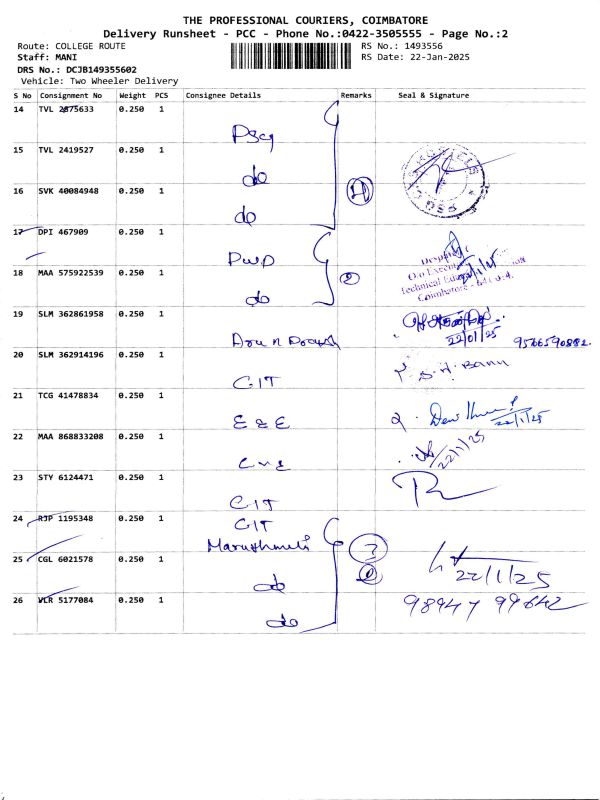 THE PROFESSIONAL COURIERS, COIMBATORE
Delivery Runsheet - PCC - Phone No.:0422-3505555 - Page No.:2
Route: COLLEGE ROUTE RS No.: 1493556
Staff: MANI RS Date: 22-Jan-2025
DRS No.: DCJB149355602
Vehicle: Two Wheeler Delivery
S No Consignment No Weight PCS Consignee Details Remarks Seal & Signature
14 TVL 2875633 0.250 1
PSG
15 TVL 2419527 0.250 1
do
16 SVK 40084948 0.250 1
do
17 DPI 467909 0.250 1
PWD
18 MAA 575922539 0.250 1
do 2
Coimbatore
19 SLM 362861958 0.250 1
22/01/25 9566590882.
20 SLM 362914196 0.250 1
CIT
21 TCG 41478834 0.250 1
E & E 22/1/25
22 MAA 868833208 0.250 1
22/1/25
23 STY 6124471 0.250 1
CIT
24 RJP 1195348 0.250 1
CIT
3
25 CGL 6021578 0.250 1
do 22/1/25
26 VLR 5177084 0.250 1 98947 99642
do